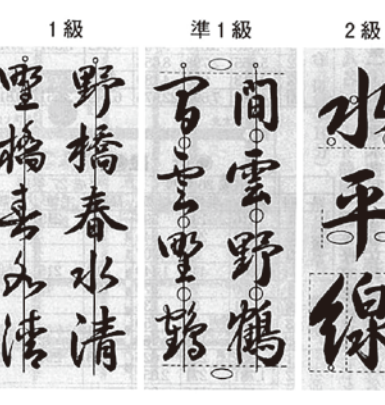 1級
野橋春水清
墅橋春水清
準1級
間雲野鶴
間雲墅鶴
2級
水平線